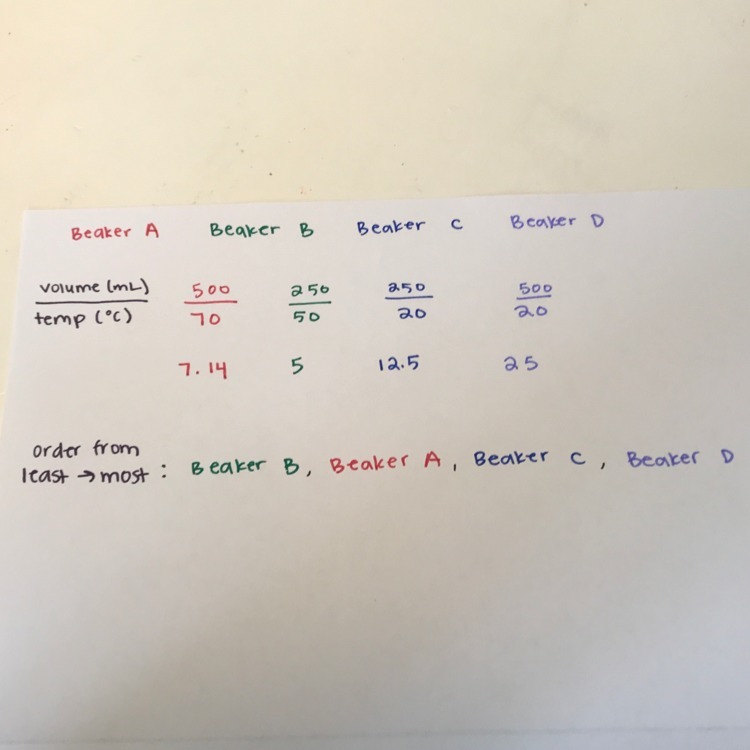 Beaker A Beaker B Beaker C Beaker D
volume (mL) 500 250 250 500
temp (°C) 70 50 20 20
7.14 5 12.5 25
order from
least → most : Beaker B, Beaker A, Beaker C, Beaker D